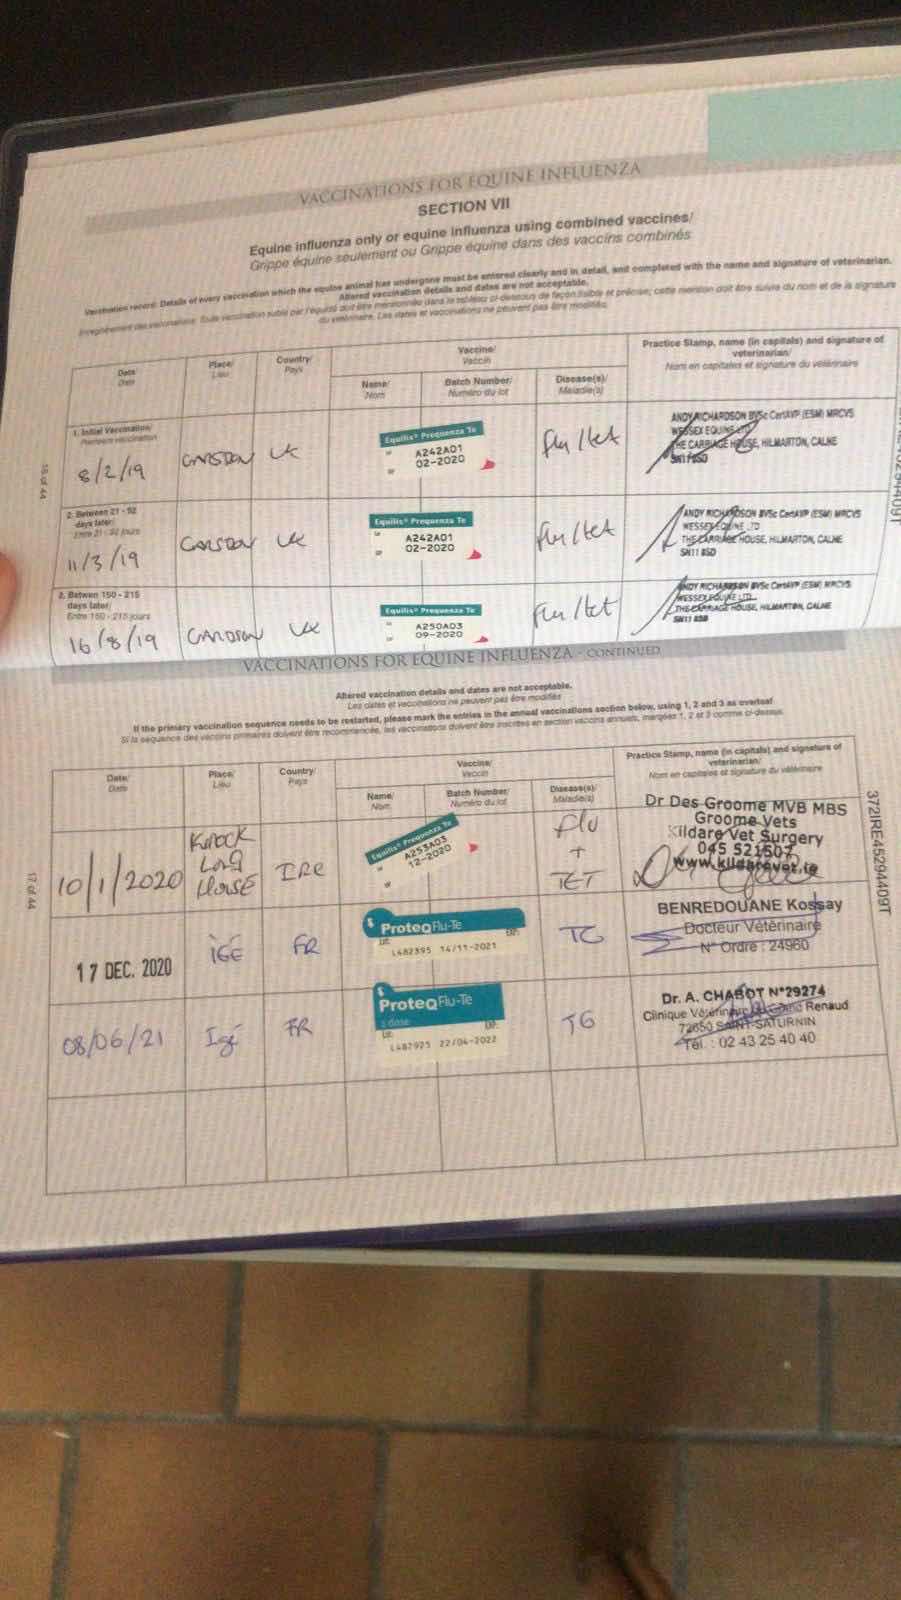 VACCINATIONS FOR EQUINE INFLUENZA
SECTION VII
Equine influenza only or equine influenza using combined vaccines/
Grippe équine seulement ou Grippe équine dans des vaccins combinés
Vaccination record: Details of every vaccination which the equine animal has undergone must be entered clearly and in detail, and completed with the name and signature of veterinarian.
Altered vaccination details and dates are not acceptable.
Enregistrement des vaccinations: Toute vaccination subie par l'équidé doit être mentionnée dans le tableau ci-dessous de façon lisible et précise; cette mention doit être suivie du nom et de la signature
du vétérinaire. Les dates et vaccinations ne peuvent pas être modifiés.
Date/
Date
Place/
Lieu
Country/
Pays
Vaccine/
Vaccin
Name/
Nom
Batch Number/
Numéro du lot
Disease(s)/
Maladie(s)
Practice Stamp, name (in capitals) and signature of
veterinarian/
Nom en capitales et signature du vétérinaire
1. Initial Vaccination/
Première vaccination
8/2/19
UK
Equilis® Prequenza Te
A242A01
02-2020
flu/tet
ANDY RICHARDSON BVSc CertAVP (ESM) MRCVS
WESSEX EQUINE LTD
THE CARRIAGE HOUSE, HILMARTON, CALNE
SN11 8SD
2. Between 21 - 92
days later/
Entre 21 - 92 jours
11/3/19
UK
Equilis® Prequenza Te
A242A01
02-2020
flu/tet
ANDY RICHARDSON BVSc CertAVP (ESM) MRCVS
WESSEX EQUINE LTD
THE CARRIAGE HOUSE, HILMARTON, CALNE
SN11 8SD
3. Betwen 150 - 215
days later/
Entre 150 - 215 jours
16/8/19
UK
Equilis® Prequenza Te
A250A03
09-2020
flu/tet
ANDY RICHARDSON BVSc CertAVP (ESM) MRCVS
WESSEX EQUINE LTD
THE CARRIAGE HOUSE, HILMARTON, CALNE
SN11 8SD
16 of 44
VACCINATIONS FOR EQUINE INFLUENZA - CONTINUED
Altered vaccination details and dates are not acceptable.
Les dates et vaccinations ne peuvent pas être modifiés
If the primary vaccination sequence needs to be restarted, please mark the entries in the annual vaccinations section below, using 1, 2 and 3 as overleaf
Si la séquence des vaccins primaires doivent être recommencée, les vaccinations doivent être inscrites en section vaccins annuels, marquées 1, 2 et 3 comme ci-dessus.
Date/
Date
Place/
Lieu
Country/
Pays
Vaccine/
Vaccin
Name/
Nom
Batch Number/
Numéro du lot
Disease(s)/
Maladie(s)
Practice Stamp, name (in capitals) and signature of
veterinarian/
Nom en capitales et signature du vétérinaire
10/1/2020
KNOCK
LONG
HOUSE
IRE
Equilis® Prequenza Te
A253A03
12-2020
FLU
+
TET
Dr Des Groome MVB MBS
Groome Vets
Kildare Vet Surgery
045 521507
www.kildarevet.ie
17 DEC. 2020
IGÉ
FR
ProteqFlu-Te
Lot:
EXP:
L482395 14/11-2021
TG
BENREDOUANE Kossay
Docteur Vétérinaire
N° Ordre : 24960
08/06/21
Igé
FR
ProteqFlu-Te
1 dose
Lot:
EXP:
L487925 22/04-2022
TG
Dr. A. CHABOT N°29274
Renaud
72650 SAINT-SATURNIN
Tél. : 02 43 25 40 40
17 of 44
372IRE45294409T